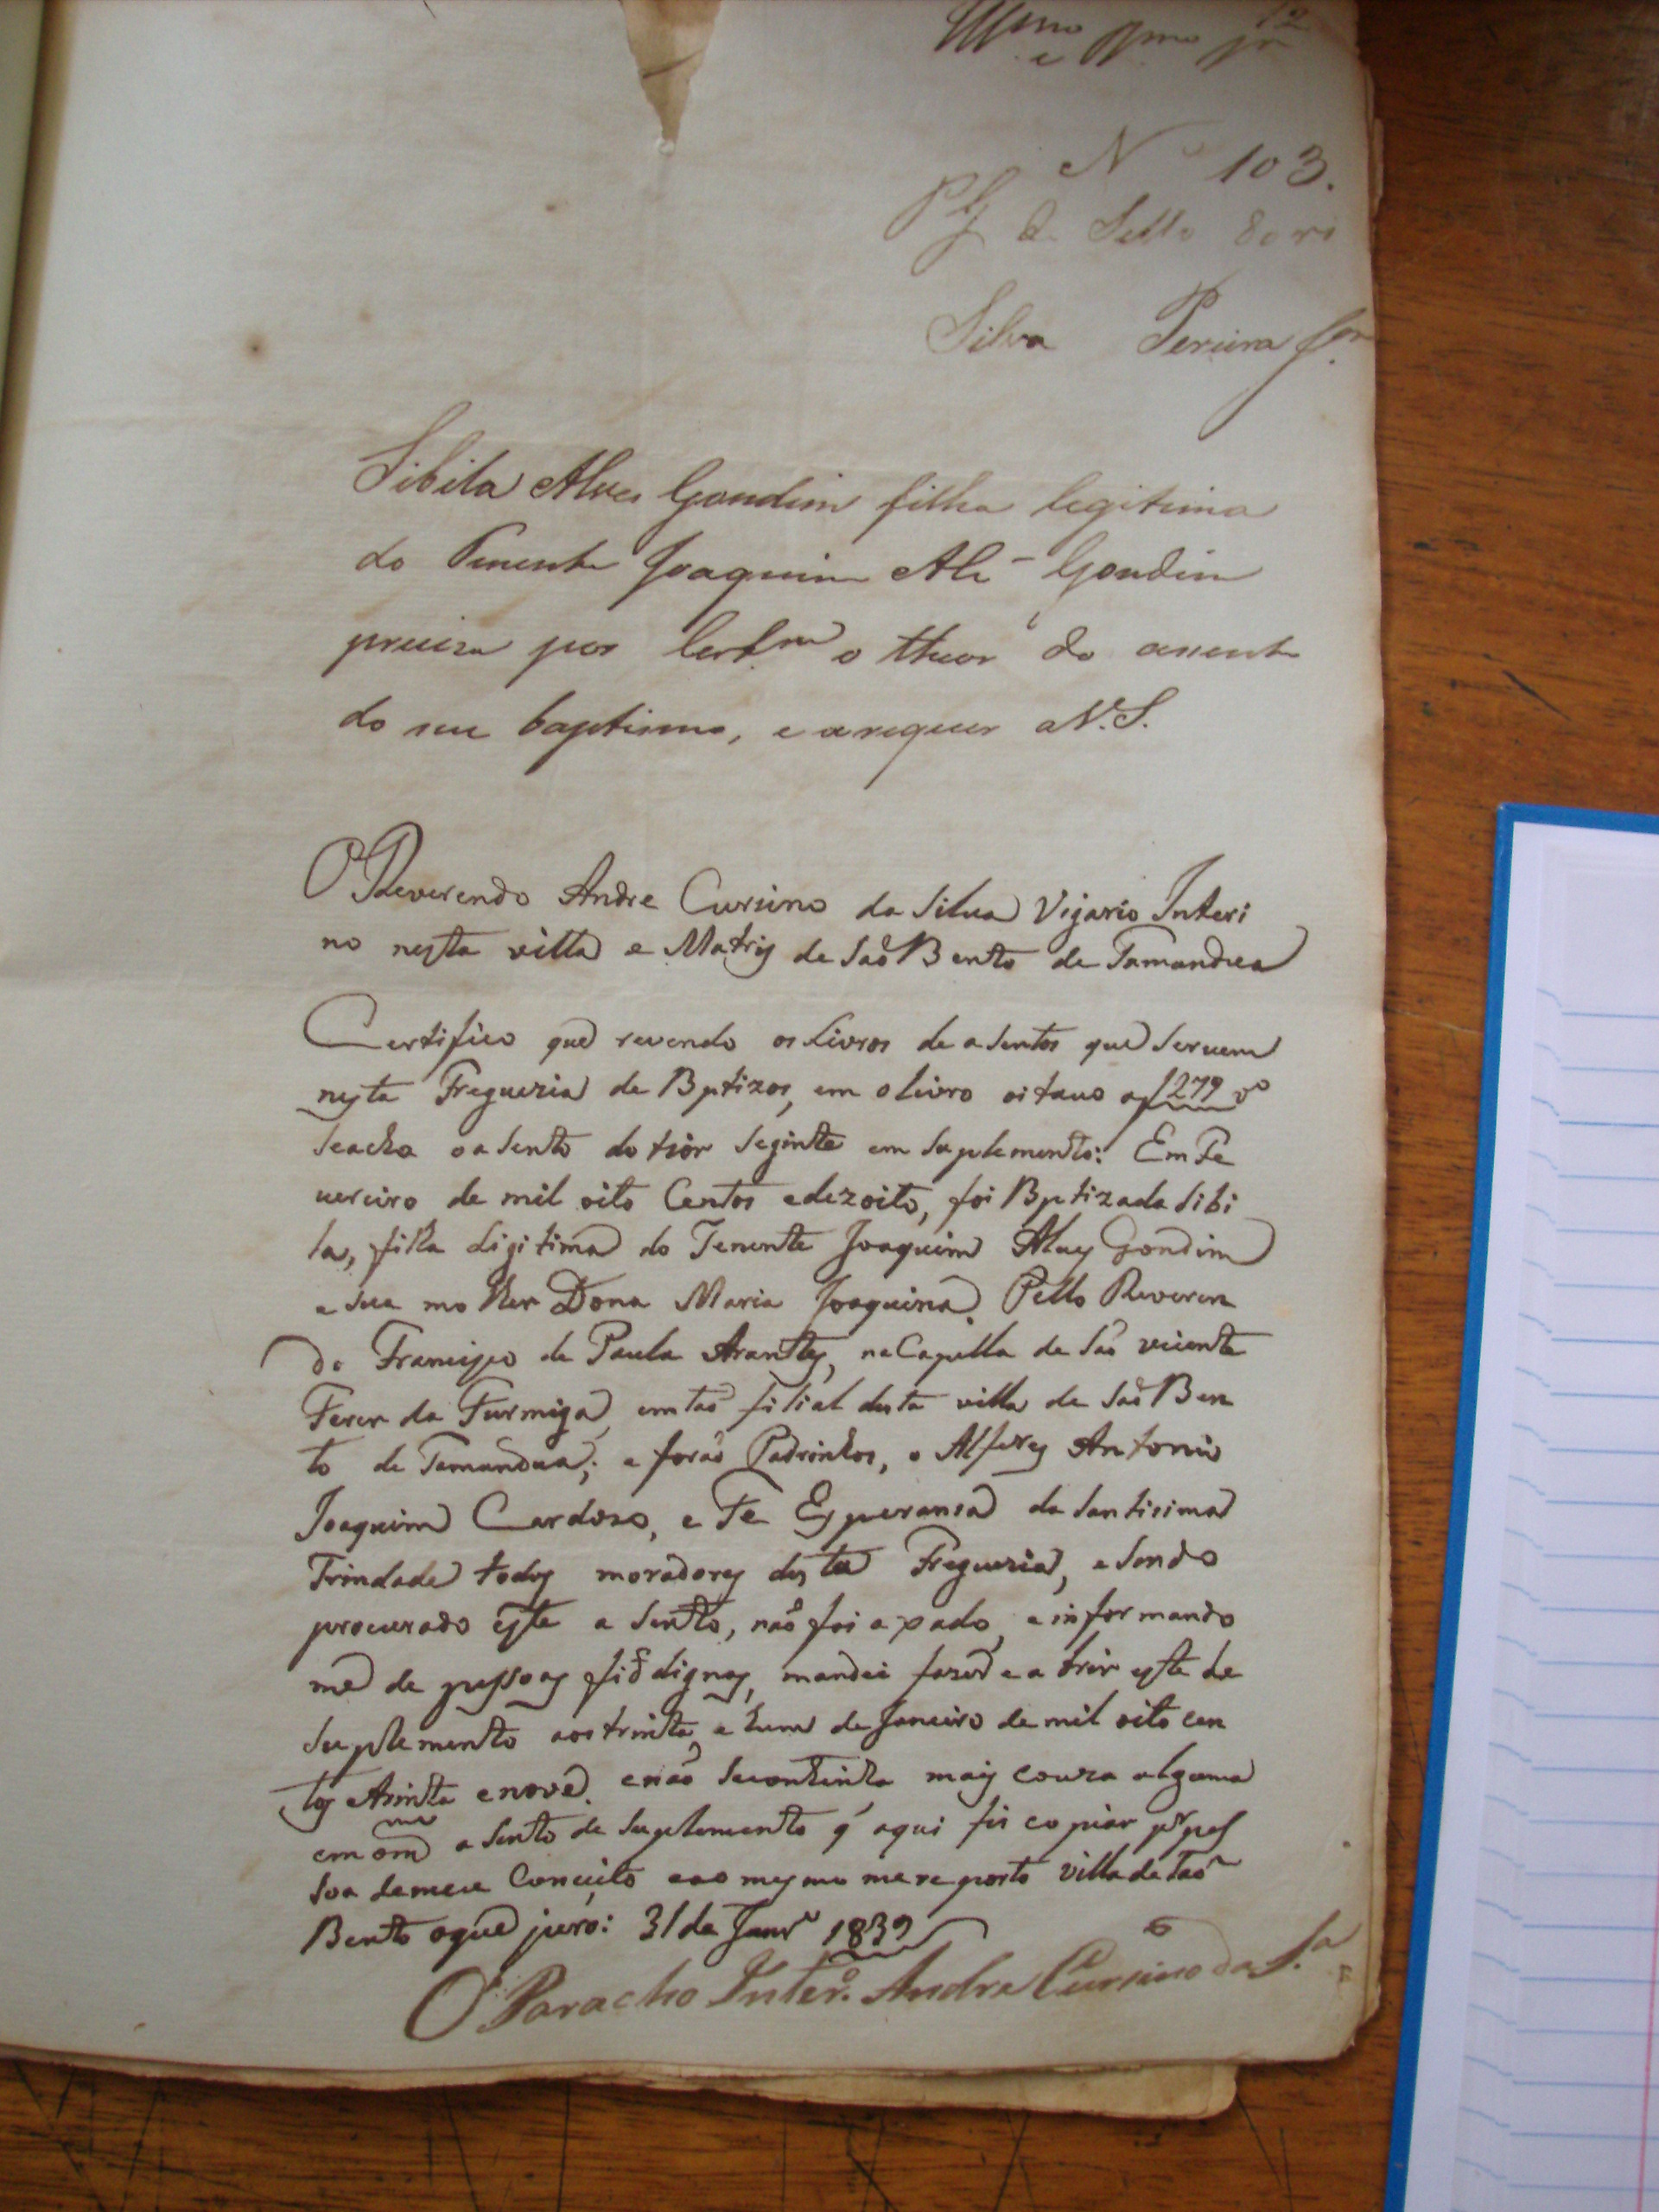 N 103.
Pg de Sello 80 rs
Silva Pereira
Sibila Alves Gondim filha legitima
do Tenente Joaquim Alz Gondim
preciza por Certam o theor do assento
do seu baptismo, e arequer a V. S.
O Reverendo Andre Cursino da Silua Vigario Interi
no nesta villa e Matris de Saõ Bento de Tamandua
Certifico que reuendo os Livros de a sentos que seruem
nesta Freguezia de Bptizos, em o livro oitauo af 279 vo
seacha o a sento do tior seginte em suplemento: Em Fe
uereiro de mil oito Centos e dezoito, foi Bptizada Sibi
la, filha Ligitima do Tenente Joaquim Alues Gondim
e sua molher Dona Maria Joaquina. Pello Reveren
do Francisco de Paula Arantes, na Capella de São vicente
Ferer da Furmiga, emtaõ filial desta villa de Saõ Ben
to de Tamandua; e foraõ Padrinhos, o Alferes Antonio
Joaquim Cardozo, e Fe Esperansa da Santisima
Trindade todos moradores desta Freguezia, e sendo
procurado este a sento, naõ foi axado, e informando
me de pessoas fidedignas, mandei fazer e abrir este de
suplemento aos trinta e hum de Janeiro de mil oito cen
tos etrinta e nove. enaõ secontinha mais couza alguma
em o mmo a sento de suplemento q' aqui fis copiar pr pes
soa demeu Conceito eao mesmo mereporto villa de Saõ
Bento oque juro: 31 de Janro 1839
O Paracho Intero. Andre Cursino da Sa